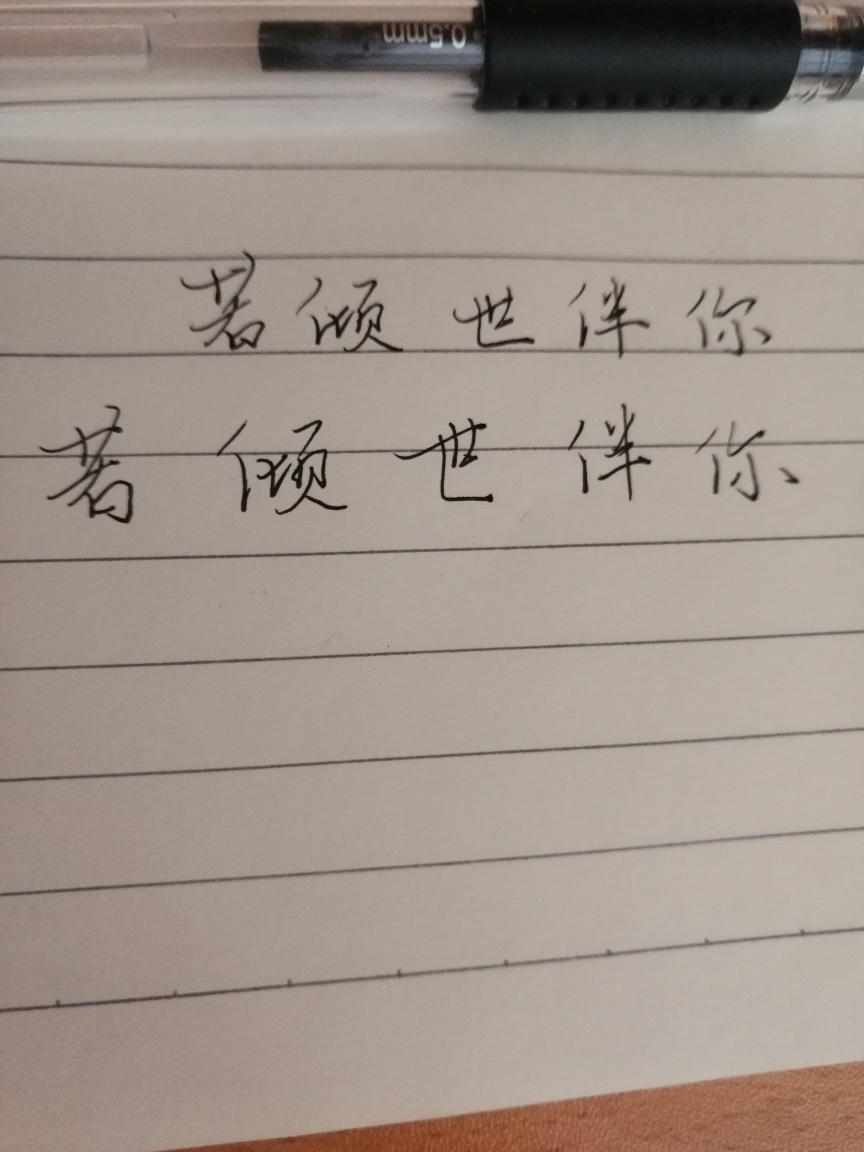 0.5mm
若倾世伴你
若倾世伴你